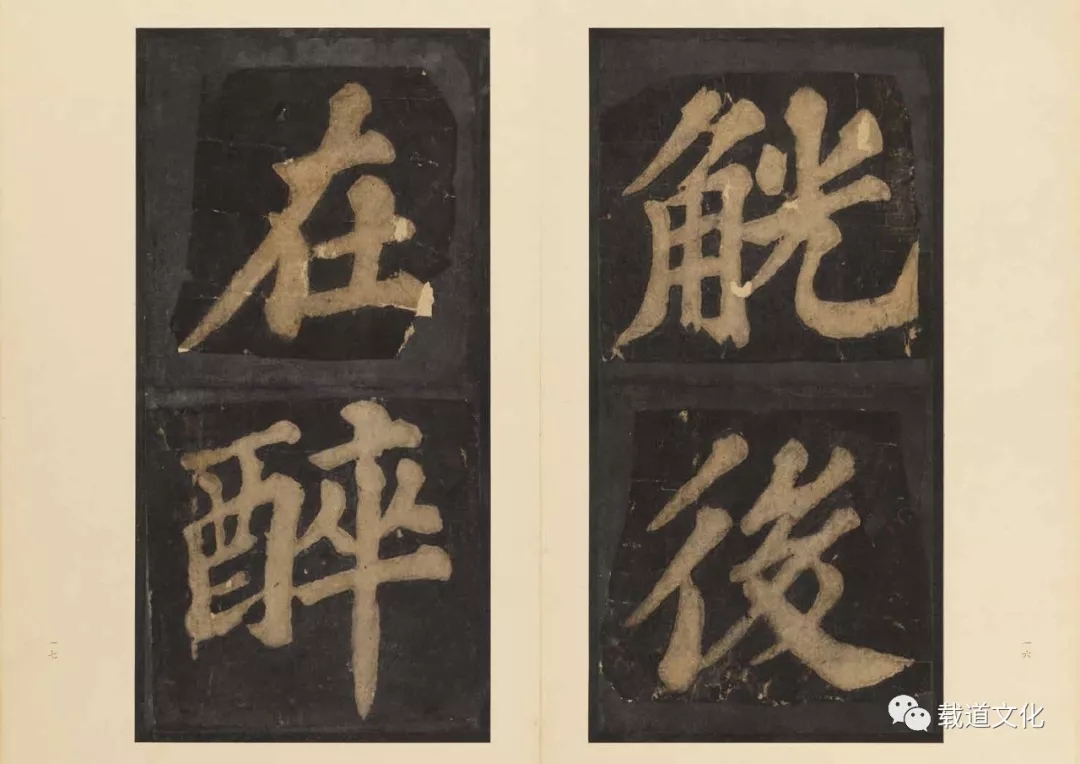 觥後
在醉
一六
一七
载道文化